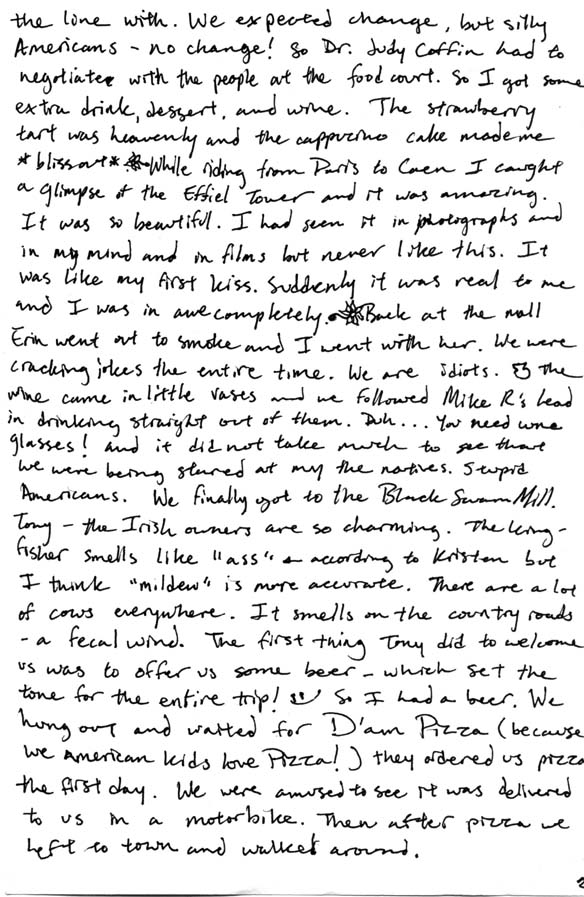 the line with. We expected change, but silly
Americans - no change! So Dr. Judy Coffin had to
negotiate with the people at the food court. So I got some
extra drink, dessert, and wine. The strawberry
tart was heavenly and the cappucino cake made me
*bliss out* While riding from Paris to Caen I caught
a glimpse of the Effiel Tower and it was amazing.
It was so beautiful. I had seen it in photographs and
in my mind and in films but never like this. It
was like my first kiss. Suddenly it was real to me
and I was in awe completely. Back at the mall
Erin went out to smoke and I went with her. We were
cracking jokes the entire time. We are idiots. The
wine came in little vases and we followed Mike R's lead
in drinking straight out of them. Duh... You need wine
glasses! and it did not take much to see that
we were being stared at my the natives. Stupid
Americans. We finally got to the Black Swam Mill.
Tony - the Irish owners are so charming. The King-
fisher smells like "ass" - according to Kristen but
I think "mildew" is more accurate. There are a lot
of cows everywhere. It smells on the country roads
- a fecal wind. The first thing Tony did to welcome
us was to offer us some beer - which set the
tone for the entire trip! So I had a beer. We
hung out and waited for D'am Pizza (because
we American kids love Pizza!) they ordered us pizza
the first day. We were amused to see it was delivered
to us in a motorbike. Then after pizza we
left to town and walked around.